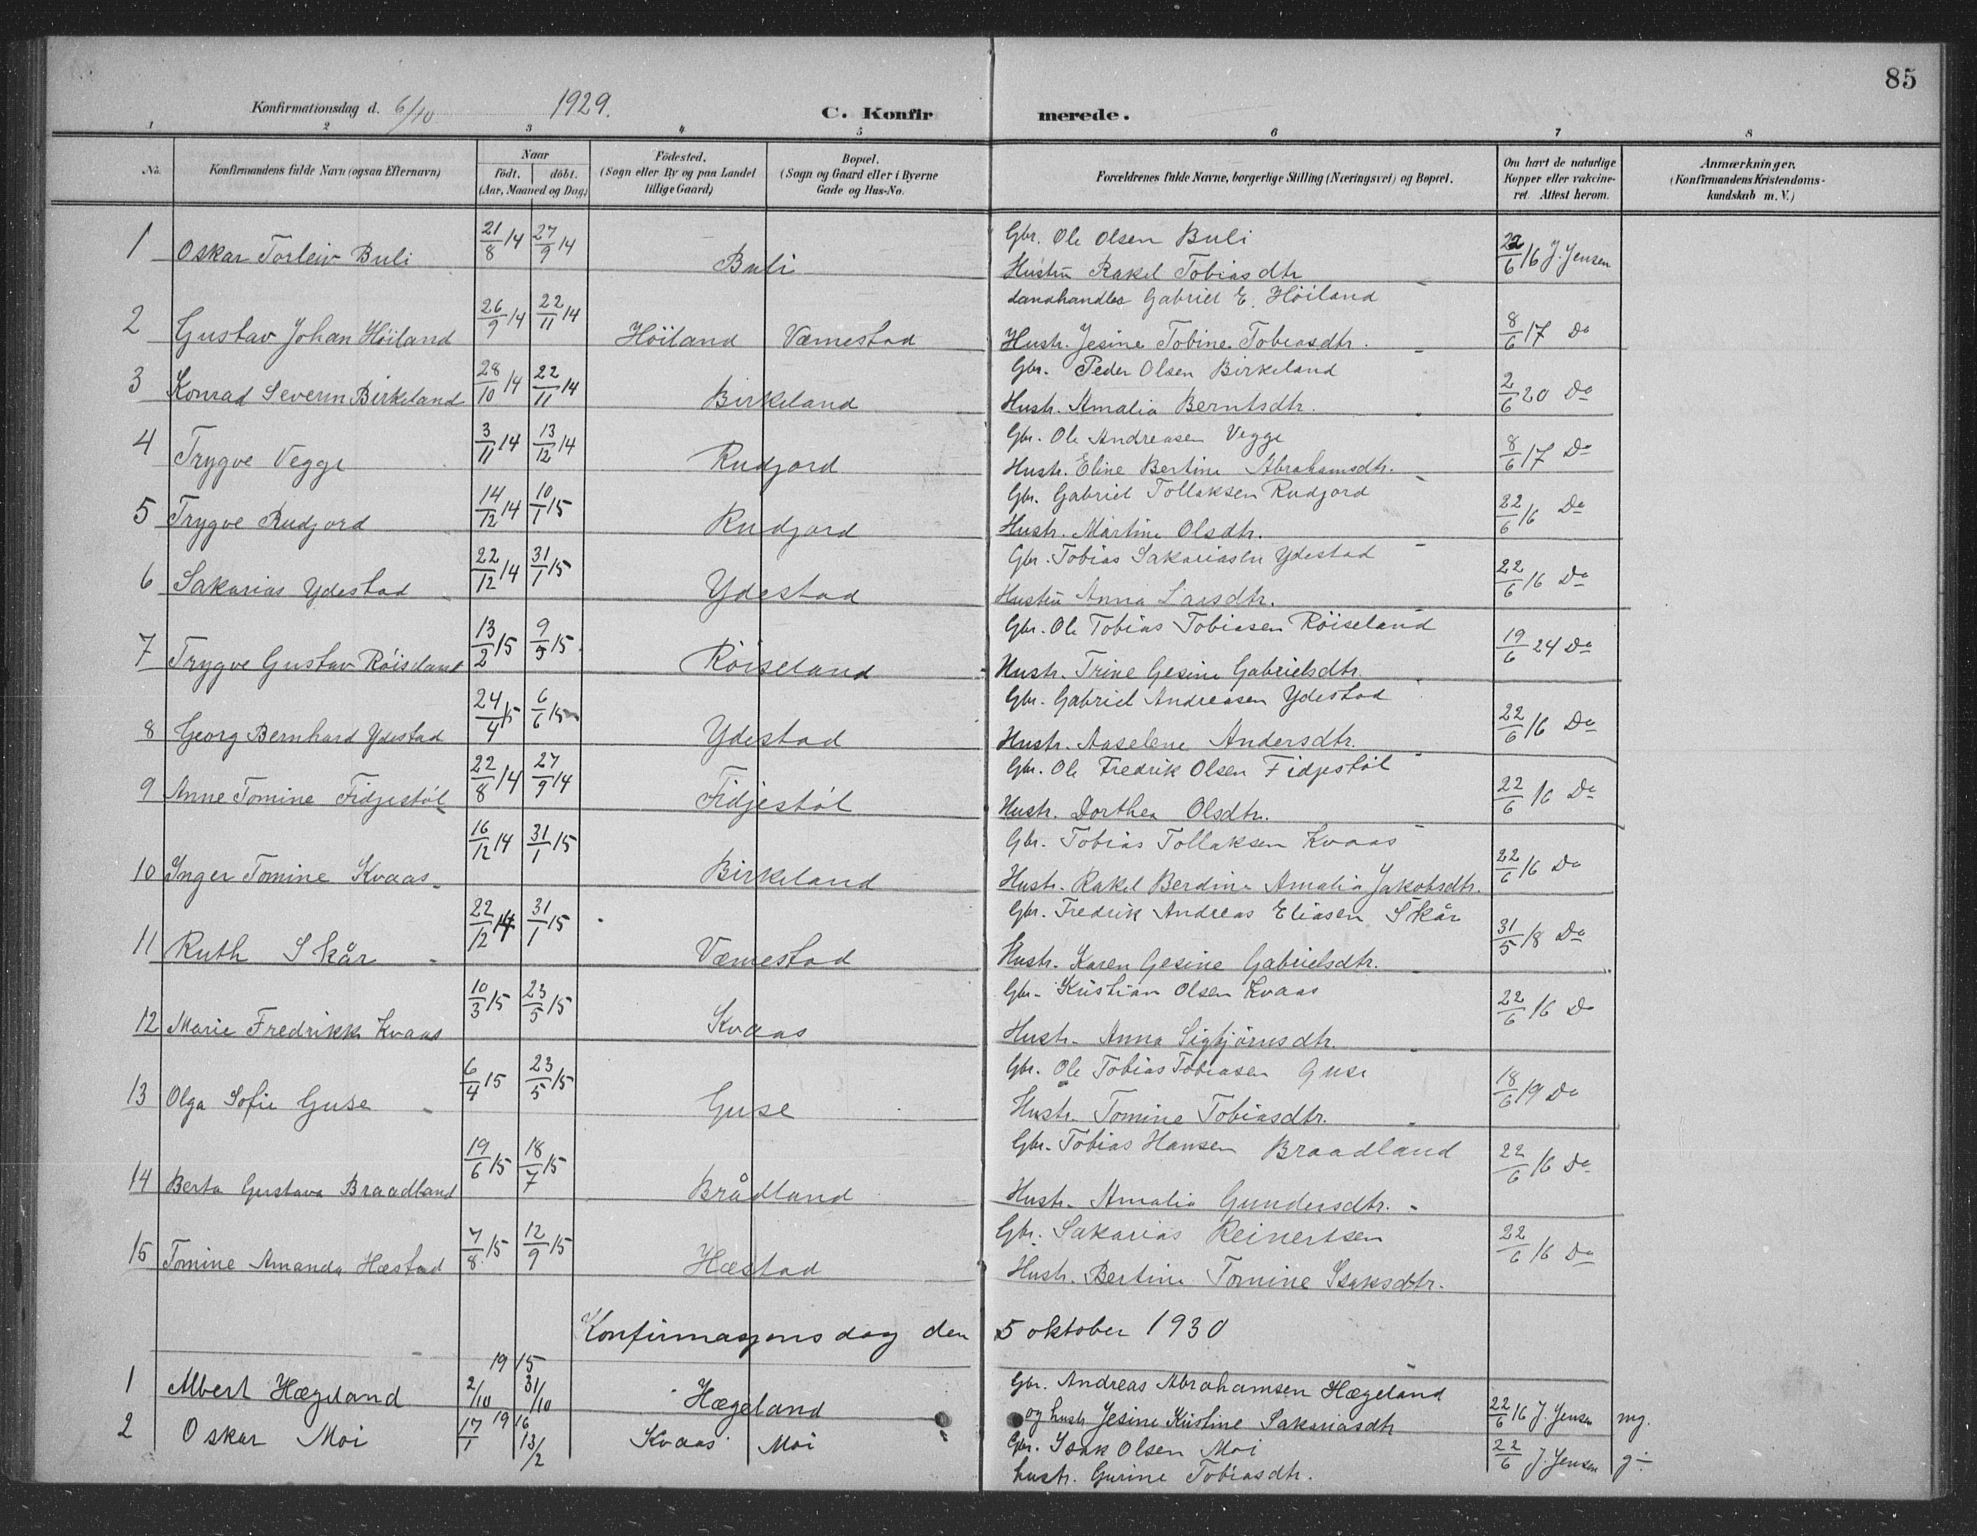 85
Konfirmationsdag d. 6/10 1929. C. Konfirmerede.
1 2 3 4 5 6 7 8
No. Konfirmandens fulde Navn (ogsaa Efternavn) Naar født. døbt. (Aar, Maaned og Dag) Fødested. (Sogn eller By og paa Landet tillige Gaard) Bopæl. (Sogn og Gaard eller i Byerne Gade og Hus-No. Forældrenes fulde Navne, borgerlige Stilling (Næringsvei) og Bopæl. Om havt de naturlige Kopper eller vakcineret. Attest herom. Anmærkninger. (Konfirmandens Kristendomskundskab m. V.)
1 Oskar Torleiv Buli 21/8 14 27/9 14 Buli Gbr. Ole Olsen Buli 22/6 16 J. Jensen
Hustru Rakel Tobiasdtr
2 Gustav Johan Höiland 26/9 14 22/11 14 Höiland Væmestad Landhandler Gabriel E. Höiland 8/6 17 Do
Hustr. Jesine Tobine Tobiasdtr.
3 Konrad Severin Birkeland 28/10 14 22/11 14 Birkeland Gbr. Peder Olsen Birkeland 2/6 20 Do
Hustr. Amalia Berntsdtr.
4 Trygve Vegge 3/11 14 13/12 14 Rudjord Gbr. Ole Andreasen Vegge 8/6 17 Do
Hustr. Eline Bertine Abrahamsdtr.
5 Trygve Rudjord 14/12 14 10/1 15 Rudjord Gbr. Gabriel Tollaksen Rudjord 22/6 16 Do
Hustr. Martine Olsdtr.
6 Sakarias Ydestad 22/12 14 31/1 15 Ydestad Gbr. Tobias Sakariasen Ydestad 22/6 16 Do
Hustru Anna Larsdtr.
7 Trygve Gustav Röiseland 13/2 15 9/5 15 Röiseland Gbr. Ole Tobias Tobiasen Röiseland 19/6 24 Do
Hustr. Trine Gesine Gabrielsdtr.
8 Georg Bernhard Ydestad 24/4 15 6/6 15 Ydestad Gbr. Gabriel Andreasen Ydestad 22/6 16 Do
Hustr. Aaselene Andersdtr.
9 Anne Tomine Fidjestöl 22/8 14 27/9 14 Fidjestöl Gbr. Ole Fredrik Olsen Fidjestöl 22/6 16 Do
Hustr. Dorthea Olsdtr.
10 Inger Tomine Kvaas 16/12 14 31/1 15 Birkeland Gbr. Tobias Tollaksen Kvaas 22/6 16 Do
Hustr. Rakel Berdine Amalia Jakobsdtr.
11 Ruth Skår 22/12 14 31/1 15 Væmestad Gbr. Fredrik Andreas Eliasen Skår 31/5 18 Do
Hustr. Karen Gesine Gabrielsdtr.
12 Marie Fredrikke Kvaas 10/3 15 23/5 15 Kvaas Gbr. Kristian Olsen Kvaas 22/6 16 Do
Hustr. Anna Sigbjörnsdtr.
13 Olga Sofie Guse 6/4 15 23/5 15 Guse Gbr. Ole Tobias Tobiasen Guse 18/6 19 Do
Hustr. Tomine Tobiasdtr.
14 Berta Gustava Braadland 19/6 15 18/7 15 Brådland Gbr. Tobias Hansen Braadland 22/6 16 Do
Hustr. Amalia Gundersdtr.
15 Tomine Amanda Hæstad 7/8 15 12/9 15 Hæstad Gbr. Sakarias Reinertsen 22/6 16 Do
Hustr. Bertine Tomine Isaksdtr.
Konfirmasjonsdag den 5 oktober 1930
1915
1 Albert Hægeland 2/10 31/10 Hægeland Gbr. Andreas Abrahamsen Hægeland 22/6 16 J. Jensen mg.
og hustr. Jesine Kristine Sakariasdtr
1916
2 Oskar Moi 17/1 13/2 Kvaas Moi Gbr. Isak Olsen Moi 22/6 J. Jensen g÷
hustr. Gurine Tobiasdtr.